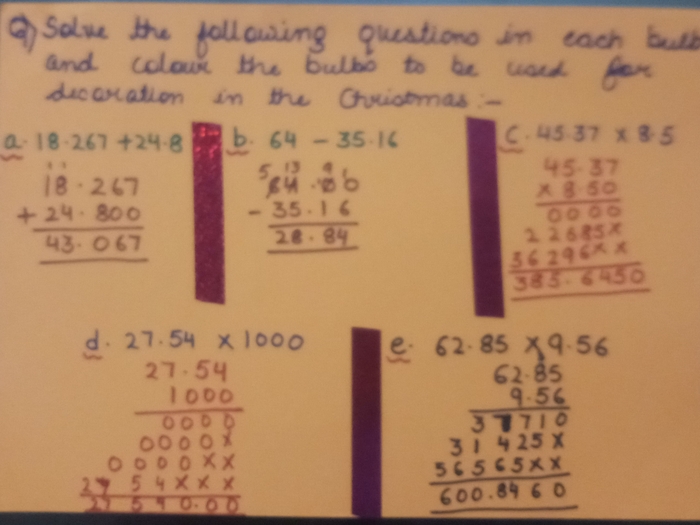 Q) Solve the following questions in each bulb
and colour the bulbs to be used for
decoration in the Christmas:-
a. 18.267 + 24.8
18.267
+ 24.800
43.067
b. 64 - 35.16
5 13 9 1
64.00
- 35.16
28.84
c. 45.37 x 8.5
45.37
x 8.50
0000
22685x
36296xx
385.6450
d. 27.54 x 1000
27.54
1000
0000
0000x
0000xx
2754xxx
27540.00
e. 62.85 x 9.56
62.85
9.56
37710
31425x
56565xx
600.8460